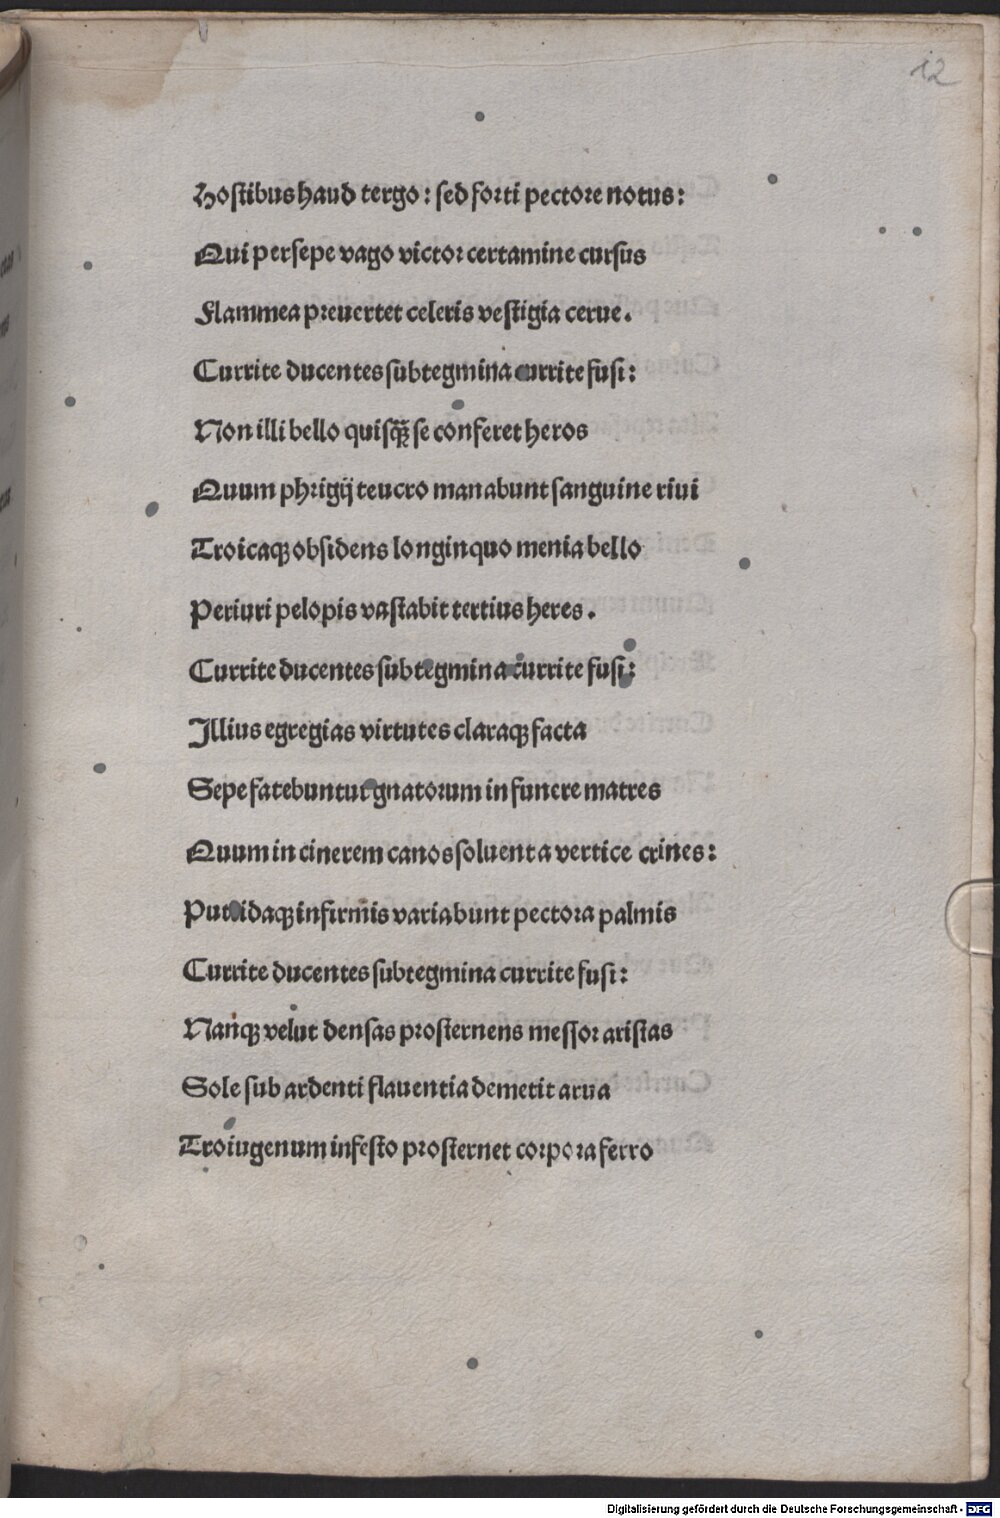 12
Hostibus haud tergo: sed forti pectore notus:
Qui persepe vago victor certamine cursus
Flammea preuertet celeris vestigia cerue.
Currite ducentes subtegmina currite fusi:
Non illi bello quisq̃ se conferet heros
Quum phrigij teucro manabunt sanguine riui
Troicaqꝫ obsidens longinquo menia bello
Periuri pelopis vastabit tertius heres.
Currite ducentes subtegmina currite fusi:
Illius egregias virtutes claraqꝫ facta
Sepe fatebuntur gnatorum in funere matres
Quum in cinerem canos soluent a vertice crines:
Putridaqꝫ infirmis variabunt pectora palmis
Currite ducentes subtegmina currite fusi:
Nanqꝫ velut densas prosternens messor aristas
Sole sub ardenti flauentia demetit arua
Troiugenum infesto prosternet corpora ferro
Digitalisierung gefördert durch die Deutsche Forschungsgemeinschaft - DFG